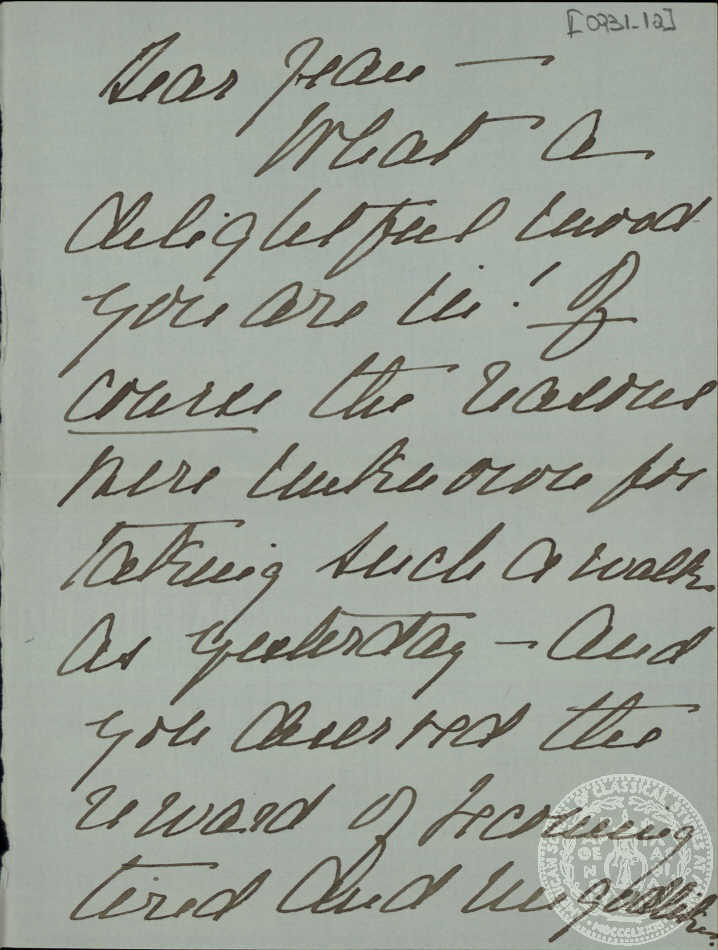 [0931-12]
Dear Jean —
What a
delightful mood
you are in! Of
course the reasons
were unknown for
taking such a walk
as yesterday — and
you deserved the
reward of becoming
tired and